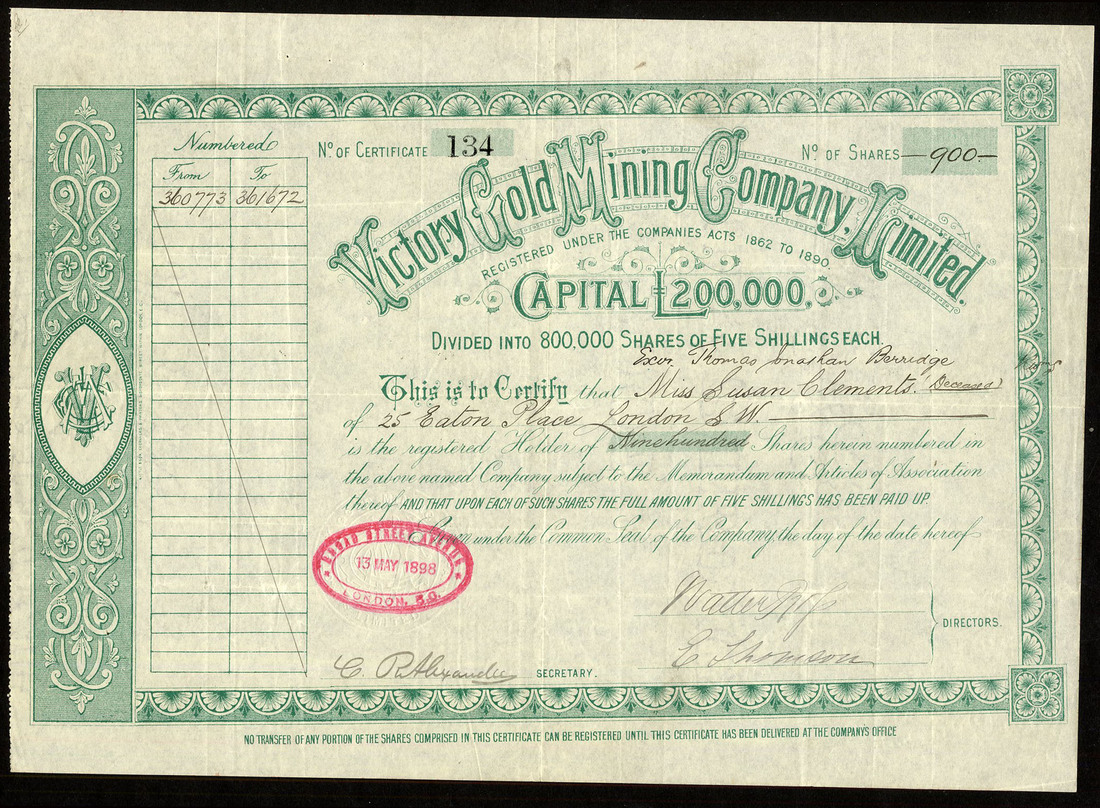 Numbered
From To
360773 361672
No. OF CERTIFICATE 134
No. OF SHARES —900—
Victory Gold Mining Company, Limited.
REGISTERED UNDER THE COMPANIES ACTS 1862 TO 1890.
CAPITAL £200,000,
DIVIDED INTO 800,000 SHARES OF FIVE SHILLINGS EACH.
Exor. Thomas Jonathan Berridge
This is to Certify that Miss Susan Clements. (Deceased)
of 25 Eaton Place London S.W.
is the registered Holder of Ninehundred Shares herein numbered in
the above named Company subject to the Memorandum and Articles of Association
thereof AND THAT UPON EACH OF SUCH SHARES THE FULL AMOUNT OF FIVE SHILLINGS HAS BEEN PAID UP.
Given under the Common Seal of the Company the day of the date hereof
BROAD STREET AVENUE
13 MAY 1898
LONDON, E.C.
Walter
E Thomson
DIRECTORS.
C. R. Alexander SECRETARY.
NO TRANSFER OF ANY PORTION OF THE SHARES COMPRISED IN THIS CERTIFICATE CAN BE REGISTERED UNTIL THIS CERTIFICATE HAS BEEN DELIVERED AT THE COMPANY'S OFFICE